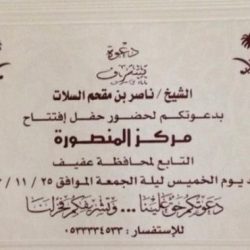 دعوة
الشيخ / ناصر بن مقحم السلات
بدعوتكم لحضور حفل إفتتاح
مركز المنصورة
التابع لمحافظة عفيف
يوم الخميس ليلة الجمعة الموافق ٢٥ / ١١ /
دعوتكم حق علينا ... وتشريفكم فخر لنا
للإستفسار : ٠٥٣٣٣٣٤٥٣٣